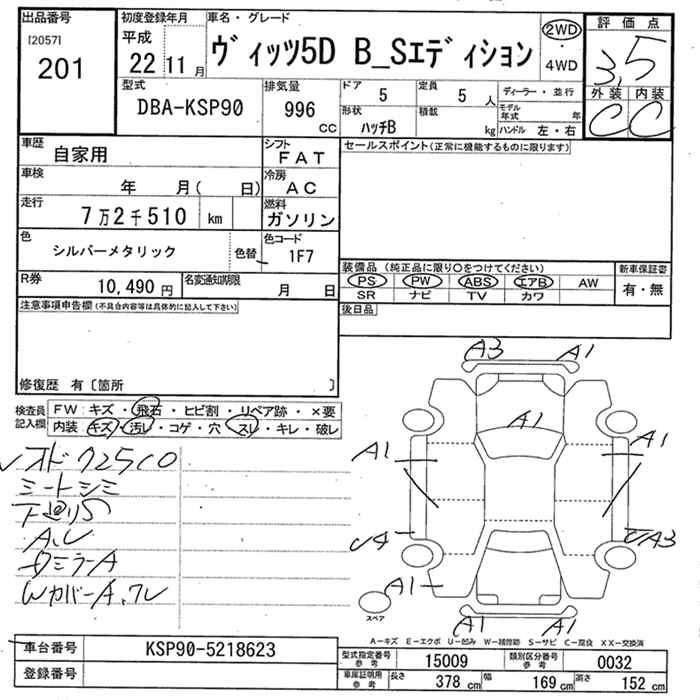 出品番号
[2057]
201
初度登録年月
平成
22 11月
車名・グレード
ヴィッツ5D B_Sエディション
2WD
・
4WD
評価点
3.5
外装 内装
C C
型式
DBA-KSP90
排気量
996
cc
ドア
5
定員
5 人
形状
ハッチB
積載
kg
ディーラー・並行
モデル年式 年
ハンドル 左・右
車歴
自家用
シフト
FAT
車検
年 月( 日)
冷房
AC
走行
7万2千510 km
燃料
ガソリン
色
シルバーメタリック
色替
色コード
1F7
R券
10,490円
名変通知期限
月 日
セールスポイント(正常に機能するものに限ります)
装備品(純正品に限り○をつけてください)
PS PW ABS エアB AW
SR ナビ TV カワ
新車保証書
有・無
後日品
注意事項申告欄(不具合内容等は具体的に記入して下さい)
修復歴 有〔箇所 〕
検査員記入欄
FW: キズ・飛石・ヒビ割・リペア跡・×要
内装: キズ・汚レ・コゲ・穴・スレ・キレ・破レ
ミートシミ
下廻りS
ミラーA
WカバーA、ワレ
A3 A1
A1
A1 A1
A1
スペア
A1 A1
A-キズ E-エクボ U-凹み W-補修跡 S-サビ C-腐食 XX-交換済
車台番号
KSP90-5218623
登録番号
型式指定番号 参考
15009
類別区分番号 参考
0032
車庫証明用 参考
長さ 378 cm
幅 169 cm
高さ 152 cm